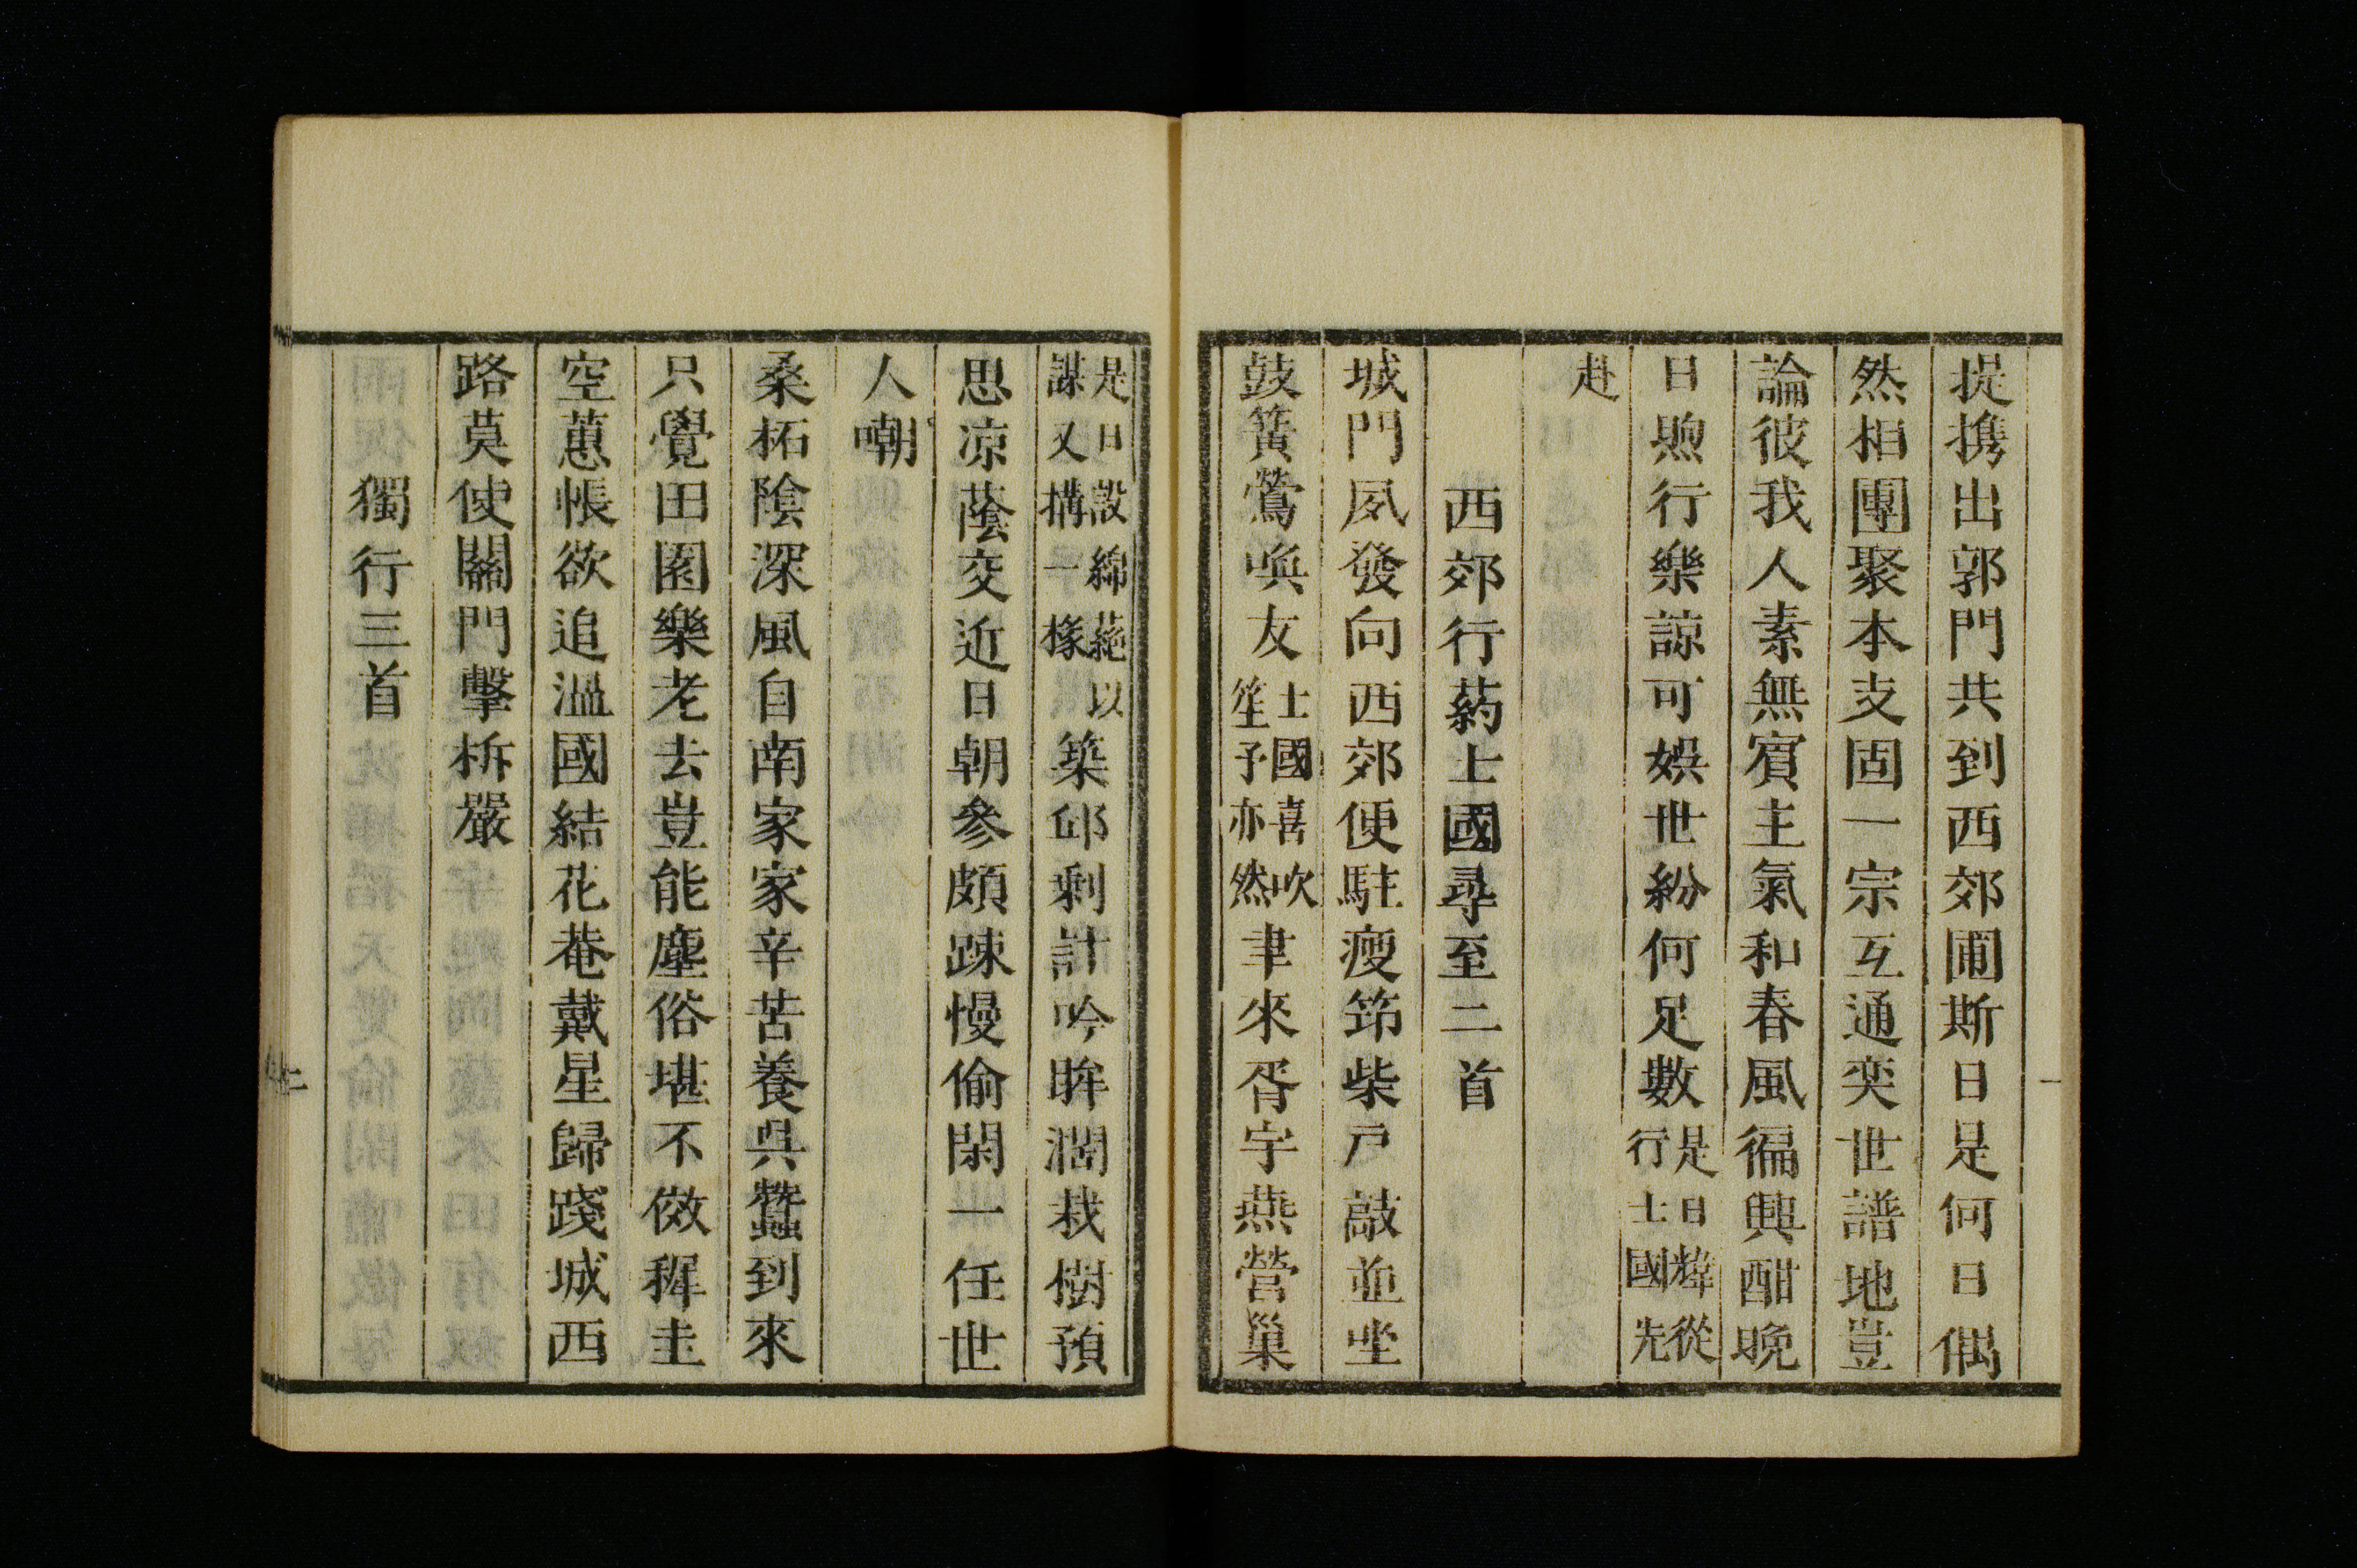 提携出郭門共到西郊圃斯日是何日偶
然相團聚本支固一宗互通奕世譜地豈
論彼我人素無賓主氣和春風徧興酣晩
日煦行樂諒可娛世紛何足數是日緯從
行士國先
赴
西郊行藥士國尋至二首
城門夙發向西郊便駐瘦筇柴戸敲並坐
鼓簧鶯喚友士國喜吹
笙予亦然聿來胥宇燕營巢
是日設綿蕝以
謀又搆一椽築邱剩計吟眸濶栽樹預
思凉蔭交近日朝參頗踈慢偷閑一任世
人嘲
桑柘陰深風自南家家辛苦養呉蠶到來
只覺田園樂老去豈能塵俗堪不傚稺圭
空蕙帳欲追溫國結花菴戴星歸踐城西
路莫使關門擊柝嚴
獨行三首
一
二